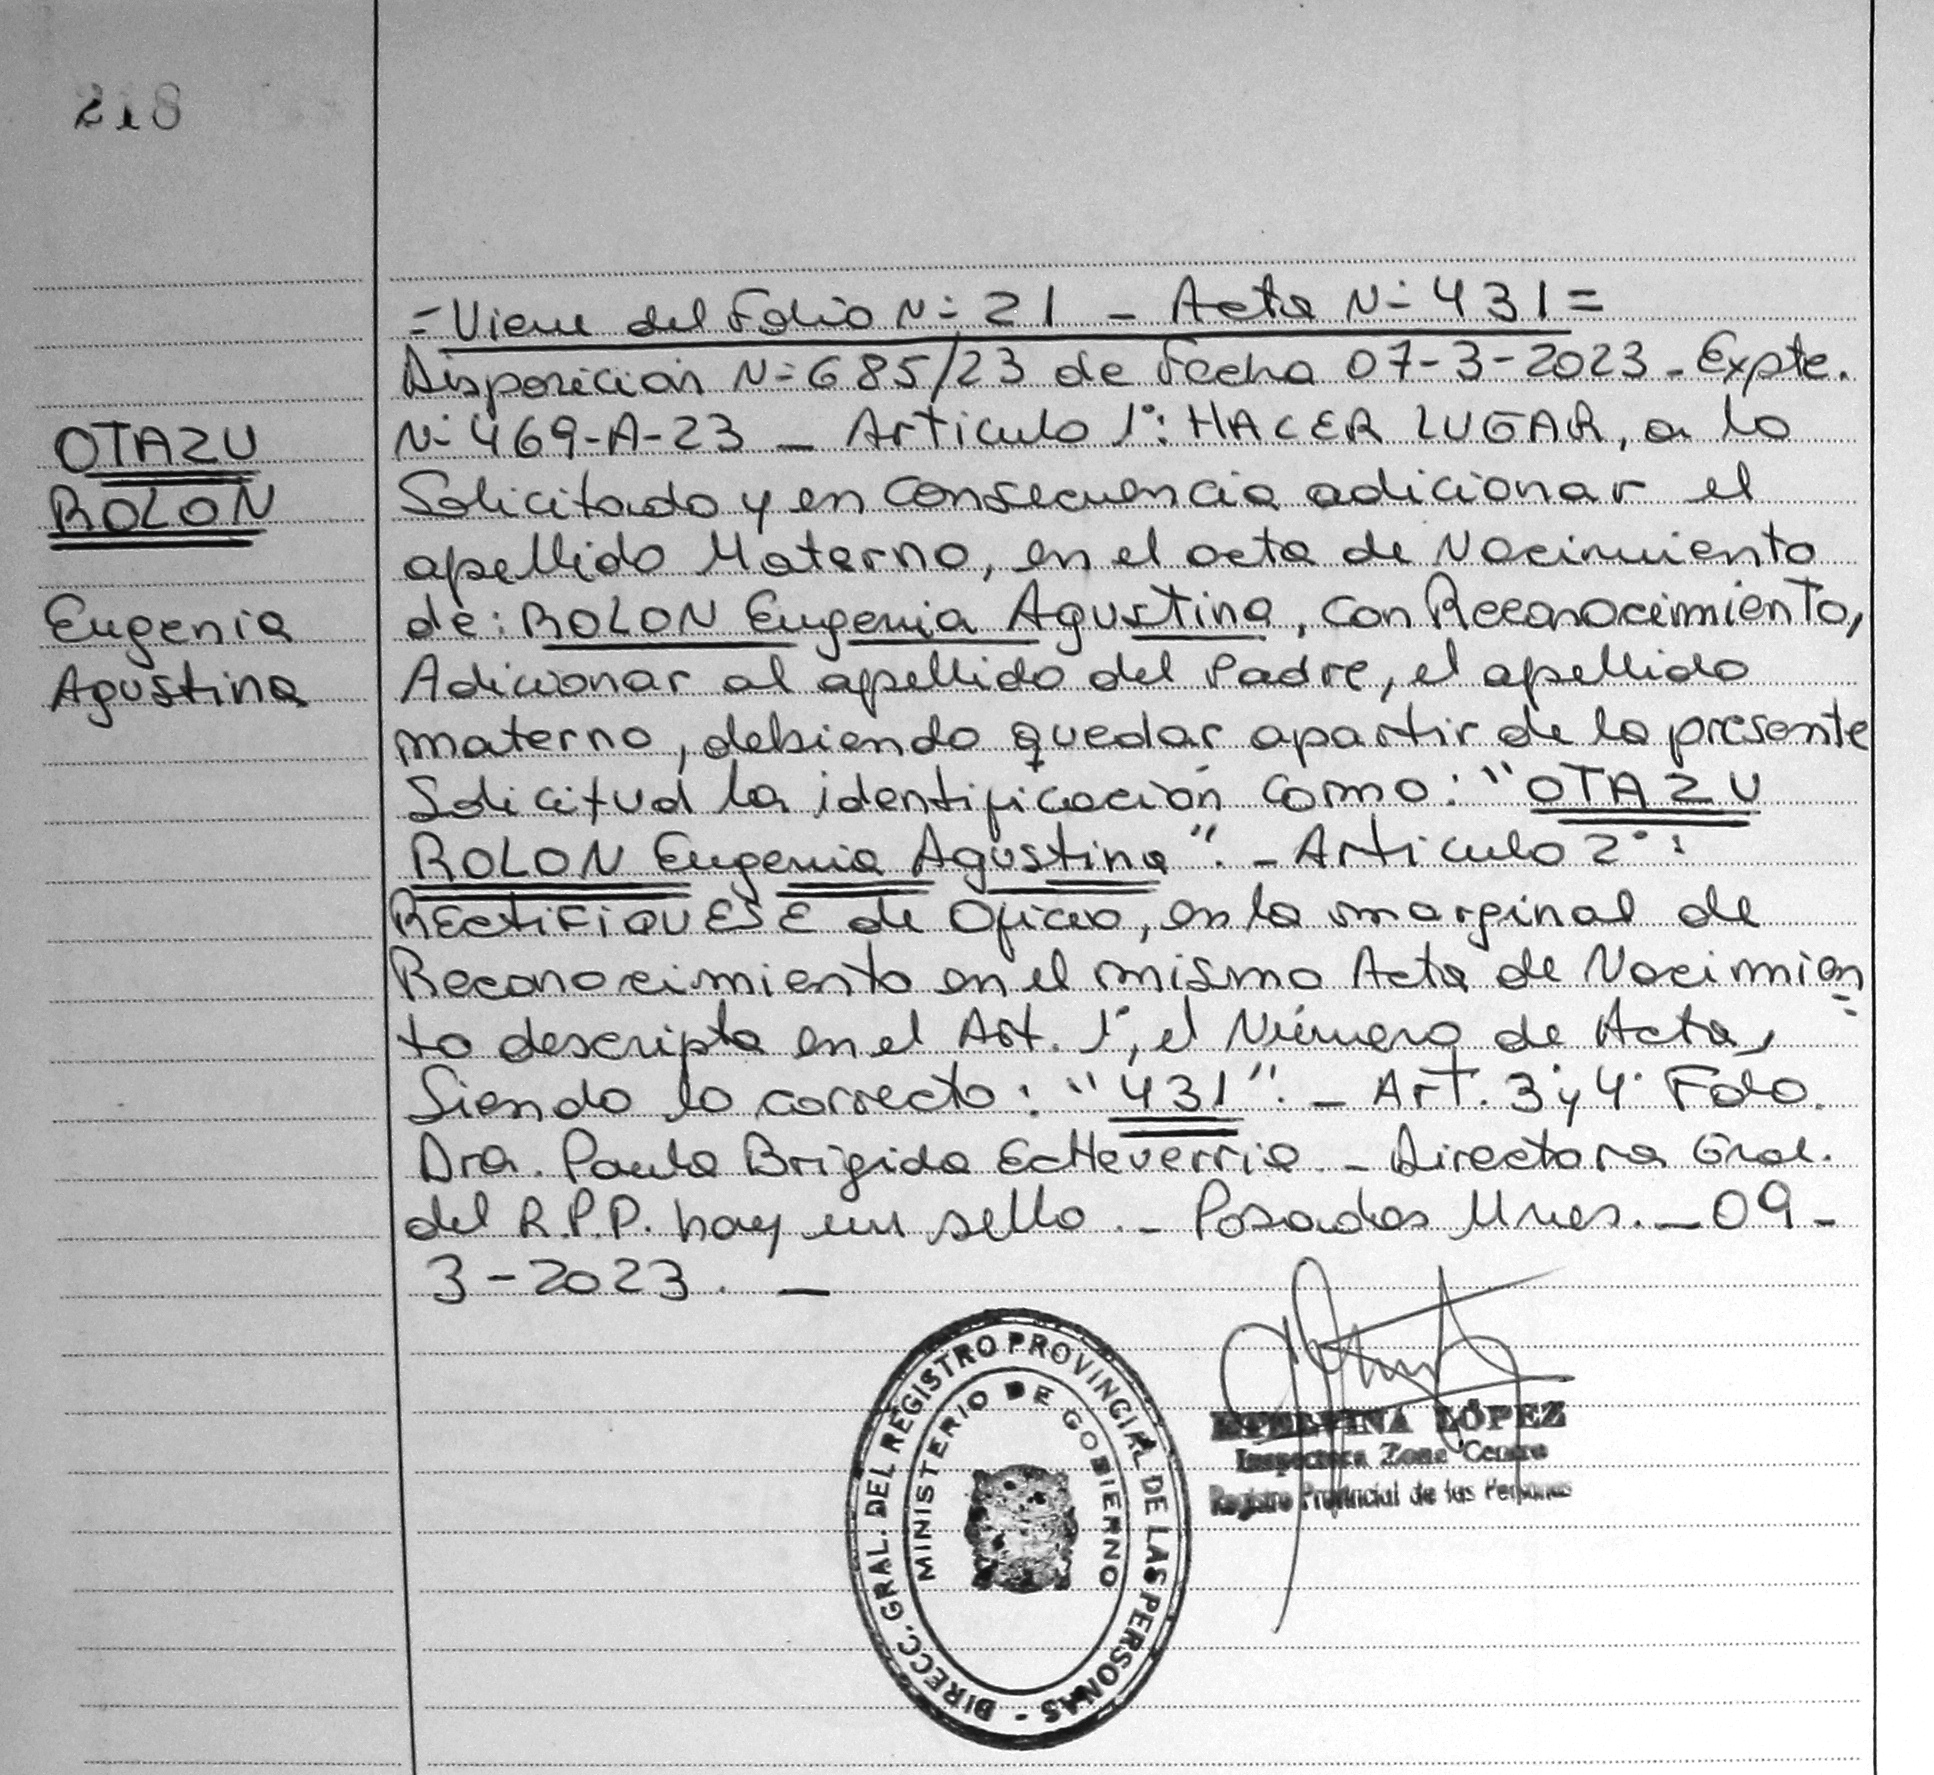 218
OTAZU
ROLON
Eugenia
Agustina
= Viene del Folio N= 21 - Acta N= 431 =
Disposición N= 685/23 de Fecha 07-3-2023 - Expte.
N= 469-A-23 - Articulo 1°: HACER LUGAR, a lo
Solicitado y en Consecuencia adicionar el
apellido Materno, en el acta de Nacimiento
de: ROLON Eugenia Agustina, con Reconocimiento,
Adicionar al apellido del Padre, el apellido
materno, debiendo quedar apartir de la presente
Solicitud la identificación como: "OTAZU
ROLON Eugenia Agustina". - Articulo 2°:
RECTIFIQUESE de Oficio, en la marginal de
Reconocimiento en el mismo Acta de Nacimien
to descripta en el Art. 1°, el Número de Acta,
Siendo lo correcto: "431". - Art. 3° y 4° Fdo.
Dra. Paula Brigida Echeverria - Directora Gral.
del R.P.P. hay un sello. - Posadas Mnes. - 09 -
3-2023. -
DIRECC. GRAL. DEL REGISTRO PROVINCIAL DE LAS PERSONAS -
MINISTERIO DE GOBIERNO
LÓPEZ
Inspectora Zona Centro
Registro Provincial de las Personas